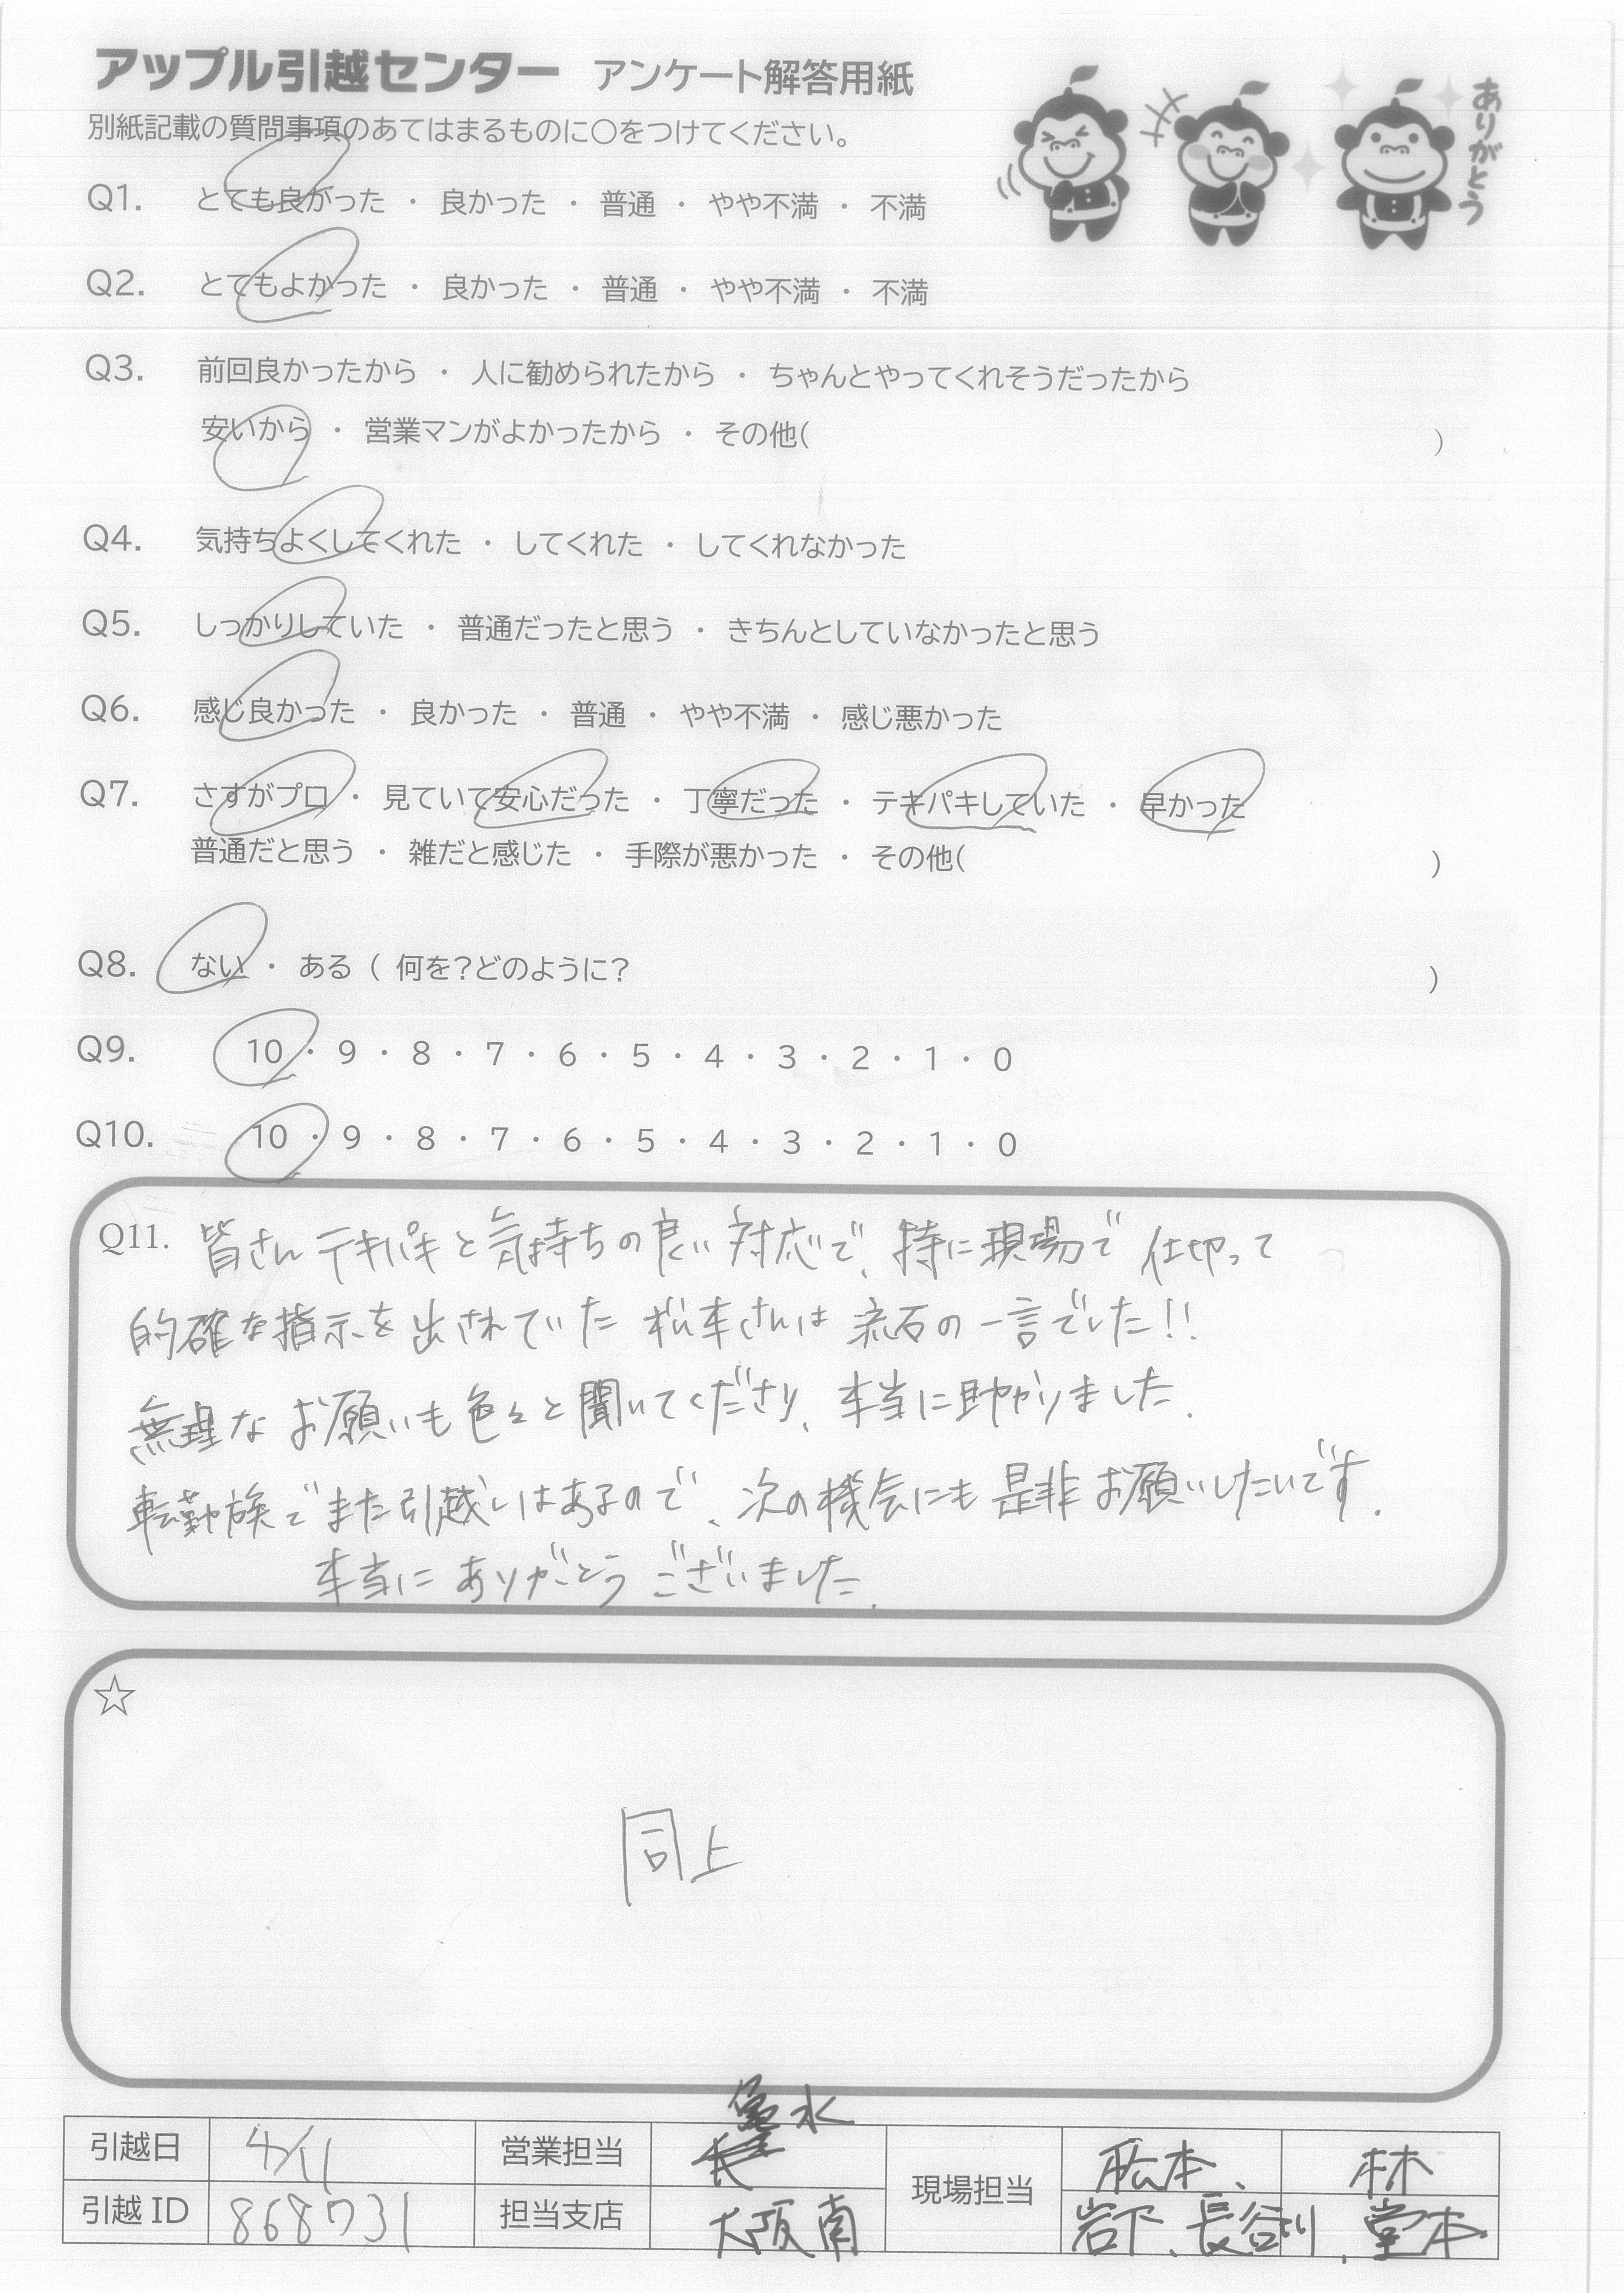 アップル引越センター アンケート解答用紙
別紙記載の質問事項のあてはまるものに○をつけてください。
ありがとう
Q1. とても良かった ・ 良かった ・ 普通 ・ やや不満 ・ 不満
Q2. とてもよかった ・ 良かった ・ 普通 ・ やや不満 ・ 不満
Q3. 前回良かったから ・ 人に勧められたから ・ ちゃんとやってくれそうだったから
安いから ・ 営業マンがよかったから ・ その他( )
Q4. 気持ちよくしてくれた ・ してくれた ・ してくれなかった
Q5. しっかりしていた ・ 普通だったと思う ・ きちんとしていなかったと思う
Q6. 感じ良かった ・ 良かった ・ 普通 ・ やや不満 ・ 感じ悪かった
Q7. さすがプロ ・ 見ていて安心だった ・ 丁寧だった ・ テキパキしていた ・ 早かった
普通だと思う ・ 雑だと感じた ・ 手際が悪かった ・ その他( )
Q8. ない ・ ある ( 何を?どのように? )
Q9. 10 ・ 9 ・ 8 ・ 7 ・ 6 ・ 5 ・ 4 ・ 3 ・ 2 ・ 1 ・ 0
Q10. 10 ・ 9 ・ 8 ・ 7 ・ 6 ・ 5 ・ 4 ・ 3 ・ 2 ・ 1 ・ 0
Q11. 皆さんテキパキと気持ちの良い対応で、特に現場で仕切って
的確な指示を出されていた松本さんは流石の一言でした!!
無理なお願いも色々と聞いてくださり、本当に助かりました.
転勤族でまた引越しはあるので、次の機会にも是非お願いしたいです.
本当にありがとうございました.
☆
同上
引越日 4/11 営業担当 水 現場担当 松本、 林
引越 ID 868731 担当支店 大阪南 岩下、長谷川、堂本